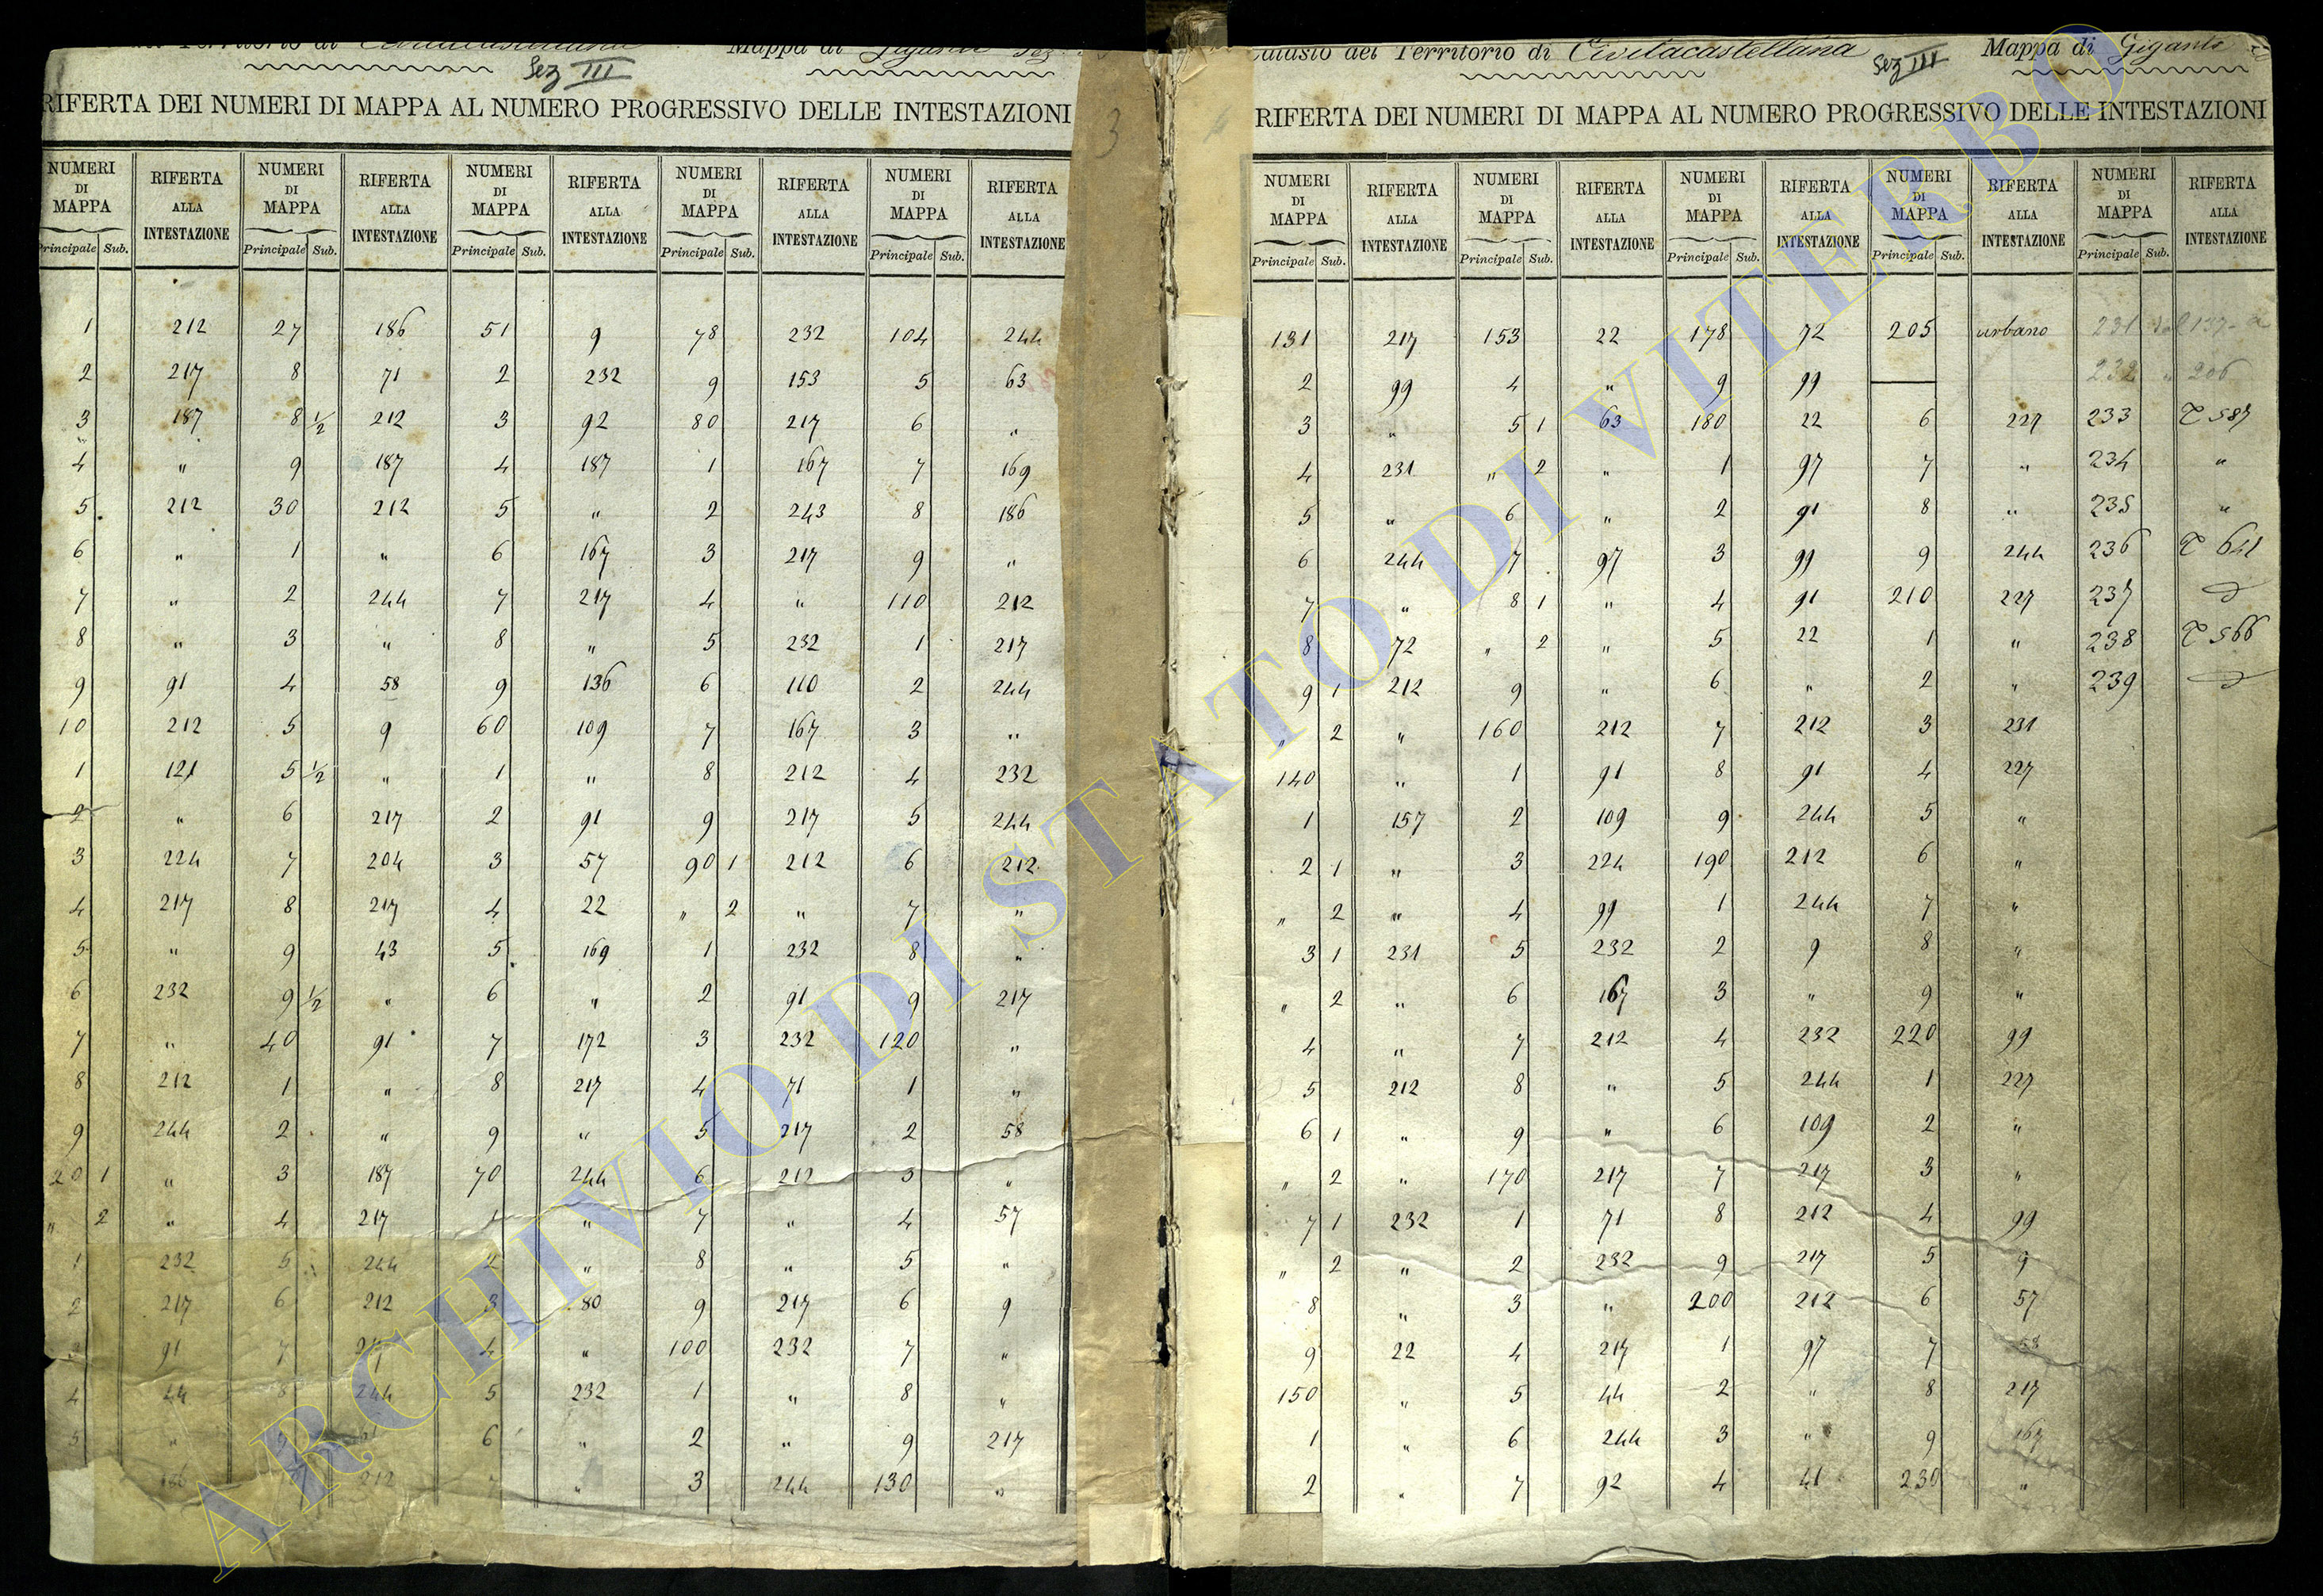 Territorio di Civitacastellana Mappa di Gigante Sez
Sez III
RIFERTA DEI NUMERI DI MAPPA AL NUMERO PROGRESSIVO DELLE INTESTAZIONI
NUMERI DI MAPPA RIFERTA ALLA INTESTAZIONE NUMERI DI MAPPA RIFERTA ALLA INTESTAZIONE NUMERI DI MAPPA RIFERTA ALLA INTESTAZIONE NUMERI DI MAPPA RIFERTA ALLA INTESTAZIONE NUMERI DI MAPPA RIFERTA ALLA INTESTAZIONE
Principale Sub. Principale Sub. Principale Sub. Principale Sub. Principale Sub.
1 212 27 186 51 9 78 232 104 244
2 217 8 71 2 232 9 153 5 63
3 187 8 1/2 212 3 92 80 217 6 "
4 " 9 187 4 187 1 167 7 169
5 212 30 212 5 " 2 243 8 186
6 " 1 " 6 167 3 217 9 "
7 " 2 244 7 217 4 " 110 212
8 " 3 " 8 " 5 232 1 217
9 91 4 58 9 136 6 110 2 244
10 212 5 9 60 109 7 167 3 "
1 121 5 1/2 " 1 " 8 212 4 232
2 " 6 217 2 91 9 217 5 244
3 224 7 204 3 57 90 1 212 6 212
4 217 8 217 4 22 " 2 " 7 "
5 " 9 43 5 169 1 232 8 "
6 232 9 1/2 " 6 " 2 91 9 217
7 " 40 91 7 172 3 232 120 "
8 212 1 " 8 217 4 71 1 "
9 244 2 " 9 " 5 217 2 58
20 1 " 3 187 70 244 6 212 3 "
" 2 " 4 217 1 " 7 " 4 57
1 232 5 244 2 " 8 " 5 "
2 217 6 212 3 80 9 217 6 9
91 7 4 " 100 232 7 "
4 44 8 244 5 232 1 " 8 "
5 " 6 " 2 " 9 217
186 212 7 " 3 244 130 "
3
Catasto del Territorio di Civitacastellana Sez III Mappa di Gigante
RIFERTA DEI NUMERI DI MAPPA AL NUMERO PROGRESSIVO DELLE INTESTAZIONI
NUMERI DI MAPPA RIFERTA ALLA INTESTAZIONE NUMERI DI MAPPA RIFERTA ALLA INTESTAZIONE NUMERI DI MAPPA RIFERTA ALLA INTESTAZIONE NUMERI DI MAPPA RIFERTA ALLA INTESTAZIONE NUMERI DI MAPPA RIFERTA ALLA INTESTAZIONE
Principale Sub. Principale Sub. Principale Sub. Principale Sub. Principale Sub.
131 217 153 22 178 72 205 urbano 231 dal 137
2 99 4 " 9 99 232 " 206
3 " 5 1 63 180 22 6 227 233 T 587
4 231 " 2 " 1 97 7 " 234 "
5 " 6 " 2 91 8 " 235 "
6 244 7 97 3 99 9 244 236 T 641
7 " 8 1 " 4 91 210 227 237
8 72 " 2 " 5 22 1 " 238 T 566
9 1 212 9 " 6 " 2 " 239
" 2 " 160 212 7 212 3 231
140 " 1 91 8 91 4 227
1 157 2 109 9 244 5 "
2 1 " 3 224 190 212 6 "
" 2 " 4 99 1 244 7 "
3 1 231 5 232 2 9 8 "
" 2 " 6 167 3 " 9 "
4 " 7 212 4 232 220 99
5 212 8 " 5 244 1 227
6 1 " 9 " 6 109 2 "
" 2 " 170 217 7 217 3 "
7 1 232 1 71 8 212 4 99
" 2 " 2 232 9 217 5 9
8 " 3 " 200 212 6 57
9 22 4 217 1 97 7 58
150 " 5 44 2 " 8 217
1 " 6 244 3 " 9 167
2 " 7 92 4 41 230 "
ARCHIVIO DI STATO DI VITERBO